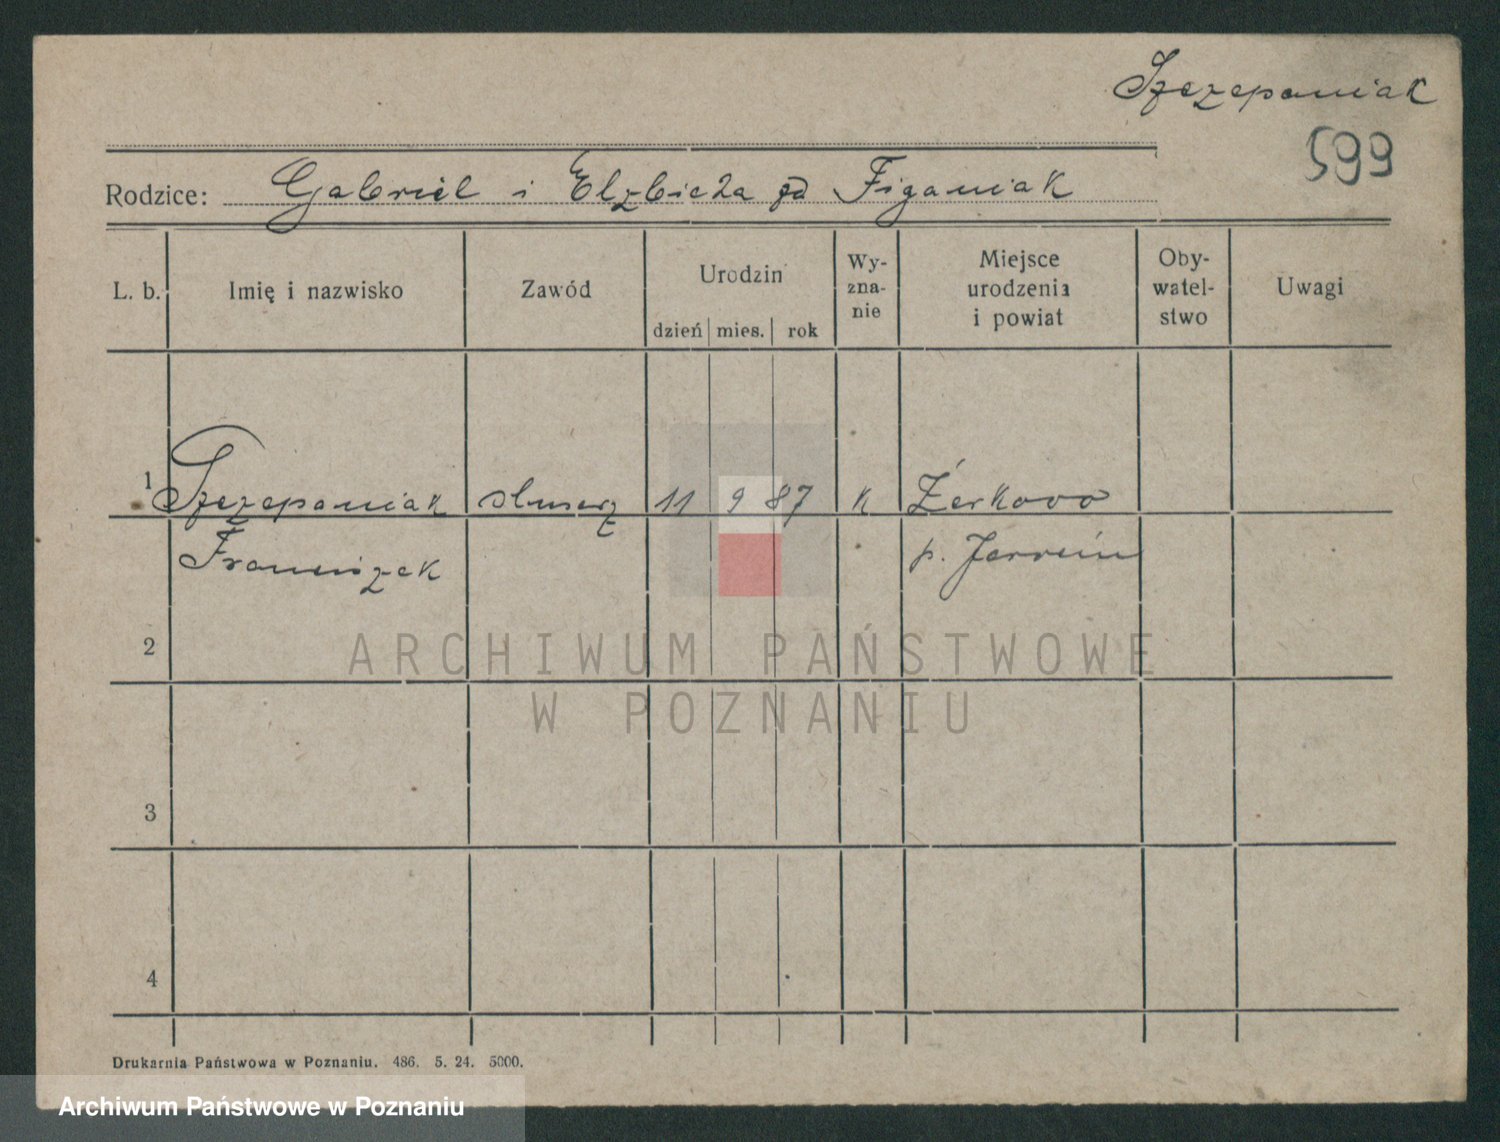 Szczepaniak
599
Rodzice: Gabriel i Elzbieta zd Figaniak
L. b. Imię i nazwisko Zawód Urodzin Wy-zna-nie Miejsce urodzenia i powiat Oby-watel-stwo Uwagi
dzień mies. rok
1 Szczepaniak slusarz 11 9 87 k Żerkowo
Franciszek p. Jarocin
2
3
4
ARCHIWUM PAŃSTWOWE
W POZNANIU
Drukarnia Państwowa w Poznaniu. 486. 5. 24. 5000.
Archiwum Państwowe w Poznaniu